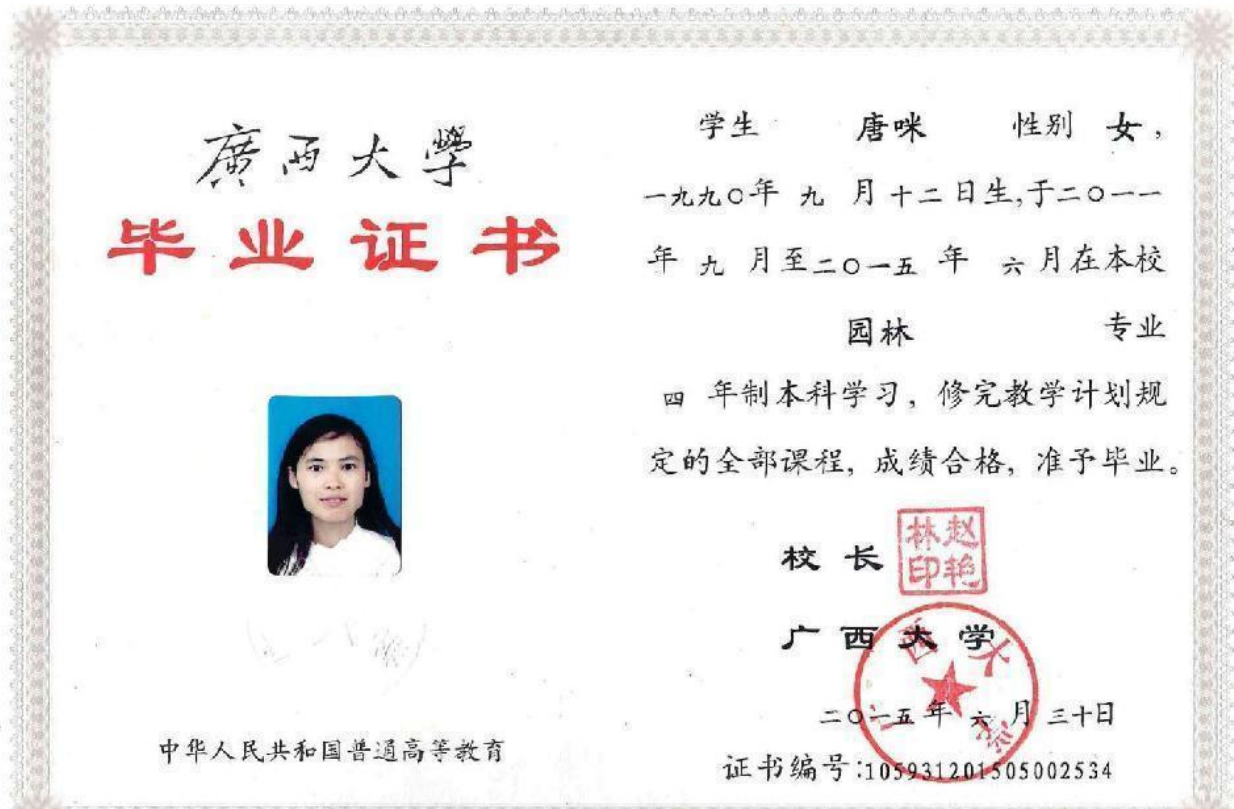 廣西大學
毕业证书
中华人民共和国普通高等教育
学生 唐咪 性别 女，
一九九〇年 九 月 十二 日生,于二〇一一
年 九 月至二〇一五 年 六 月在本校
园林 专业
四 年制本科学习，修完教学计划规
定的全部课程，成绩合格，准予毕业。
校 长
赵艳林印
广 西 大 学
广西大学
二〇一五 年 六 月 三十日
证书编号:105931201505002534